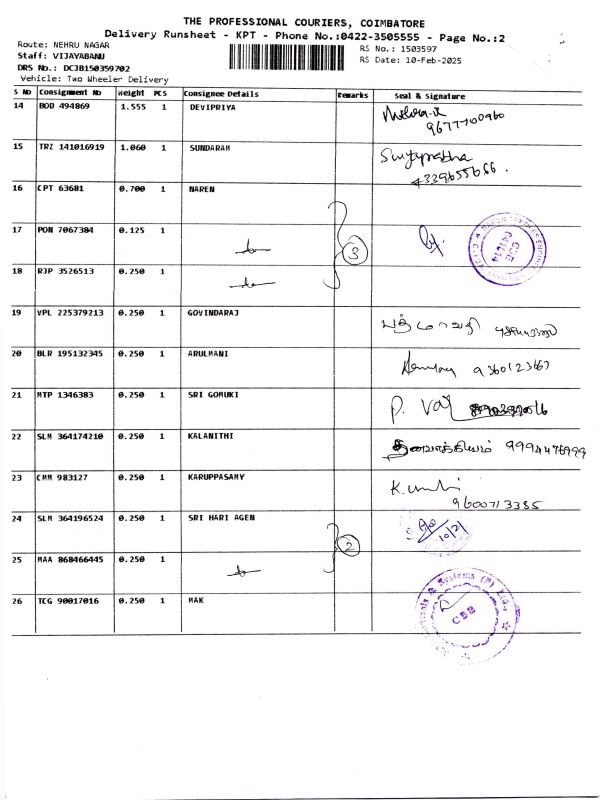 THE PROFESSIONAL COURIERS, COIMBATORE
Delivery Runsheet - KPT - Phone No.:0422-3505555 - Page No.:2
Route: NEHRU NAGAR
Staff: VIJAYABANU
DRS No.: DCJB150359702
Vehicle: Two Wheeler Delivery
RS No.: 1503597
RS Date: 10-Feb-2025
S No Consignment No Weight PCS Consignee Details Remarks Seal & Signature
14 BOD 494869 1.555 1 DEVIPRIYA
9677700960
15 TRZ 141016919 1.060 1 SUNDARAM
16 CPT 63681 0.700 1 NAREN
17 PON 7067384 0.125 1
3
18 RJP 3526513 0.250 1
19 VPL 225379213 0.250 1 GOVINDARAJ
20 BLR 195132345 0.250 1 ARULMANI
9360123667
21 MTP 1346383 0.250 1 SRI GOMUKI
22 SLM 364174210 0.250 1 KALANITHI
9994476999
23 CMM 983127 0.250 1 KARUPPASAMY
9600713385
24 SLM 364196524 0.250 1 SRI HARI AGEN
10/2
2
25 MAA 868466445 0.250 1
26 TCG 90017016 0.250 1 MAK
CBE